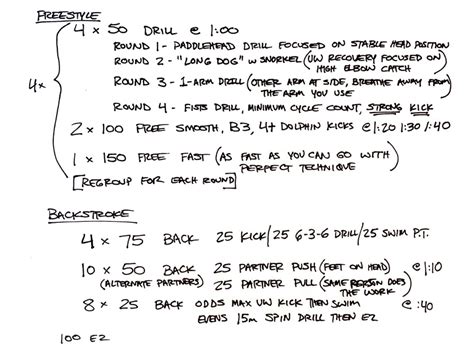 FREESTYLE
4 x 50 DRILL @ 1:00
ROUND 1 - PADDLEHEAD DRILL FOCUSED ON STABLE HEAD POSITION
ROUND 2 - "LONG DOG" W SNORKEL (UW RECOVERY FOCUSED ON
HIGH ELBOW CATCH)
4x
ROUND 3 - 1-ARM DRILL (OTHER ARM AT SIDE, BREATHE AWAY FROM
THE ARM YOU USE)
ROUND 4 - FISTS DRILL, MINIMUM CYCLE COUNT, STRONG KICK
2 x 100 FREE SMOOTH, B3, 4+ DOLPHIN KICKS @ 1:20 1:30 1:40
1 x 150 FREE FAST (AS FAST AS YOU CAN GO WITH
PERFECT TECHNIQUE)
[REGROUP FOR EACH ROUND]
BACKSTROKE
4 x 75 BACK 25 KICK/25 6-3-6 DRILL/25 SWIM P.T.
10 x 50 BACK 25 PARTNER PUSH (FEET ON HEAD) @ 1:10
(ALTERNATE PARTNERS) 25 PARTNER PULL (SAME PERSON DOES
THE WORK)
8 x 25 BACK ODDS MAX UW KICK THEN SWIM @ :40
EVENS 15m SPIN DRILL THEN EZ
100 EZ